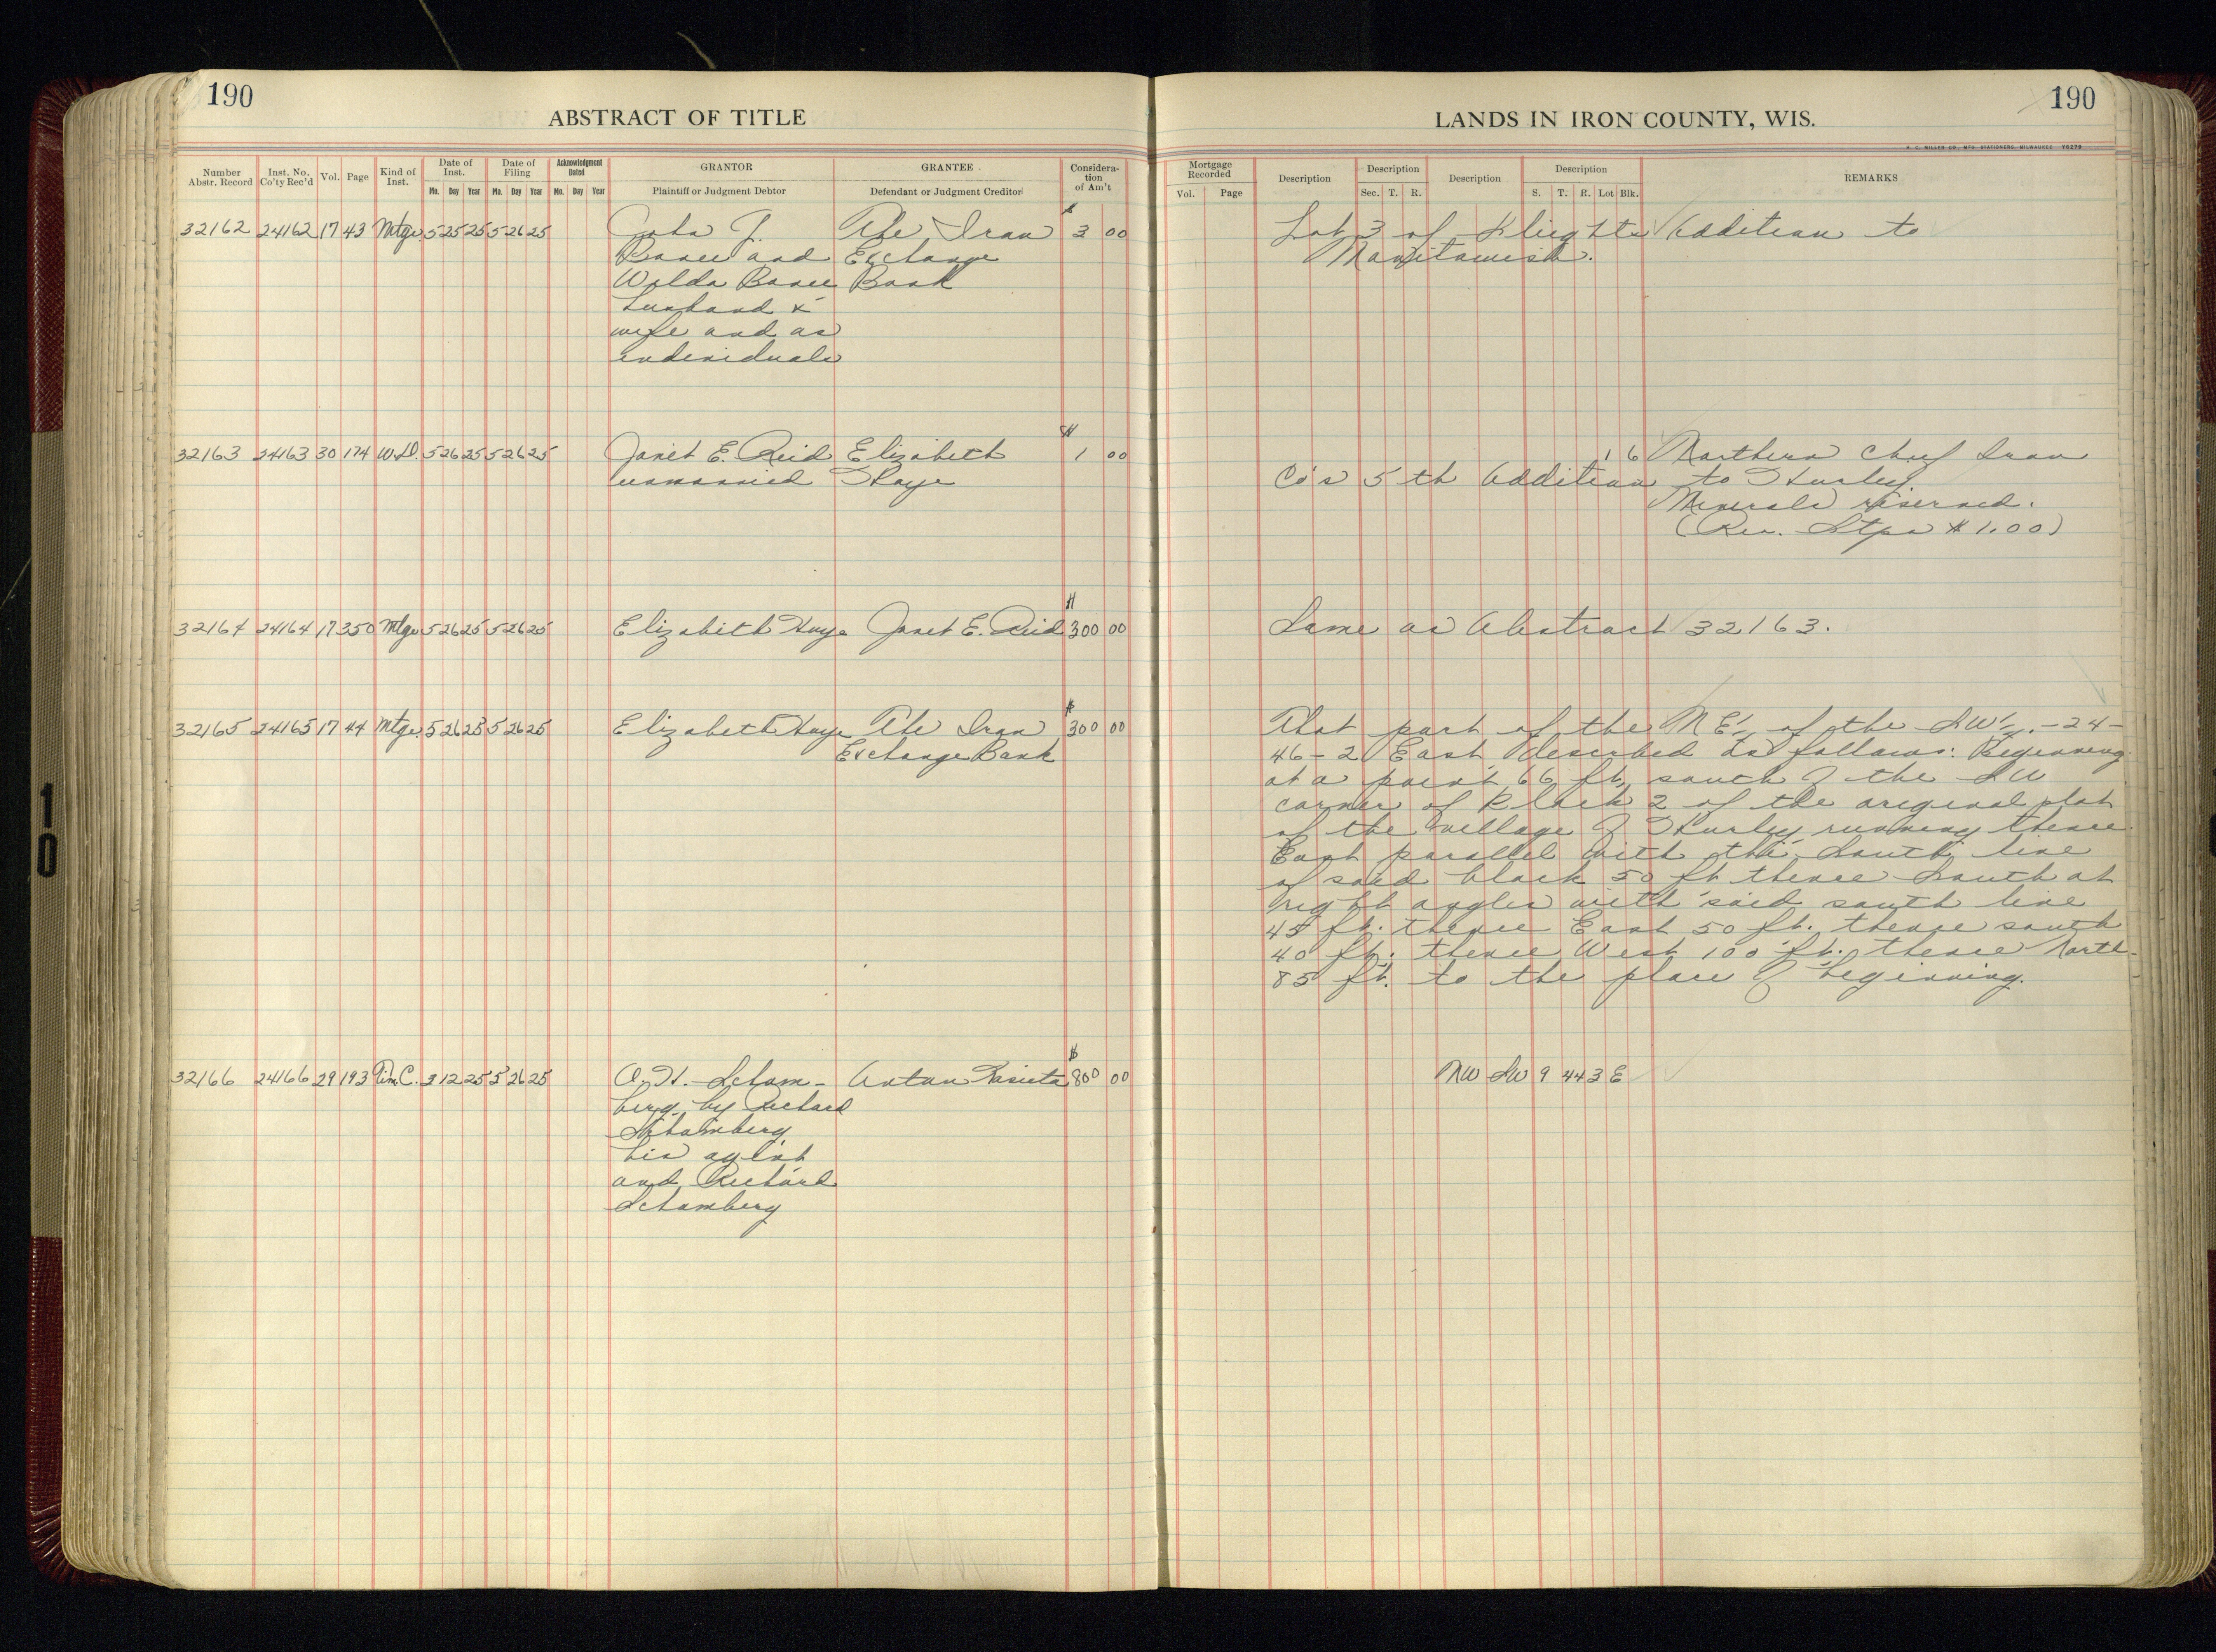 190
ABSTRACT OF TITLE
Number Abstr. Record | Inst. No. Co'ty Rec'd | Vol. | Page | Kind of Inst. | Date of Inst. Mo. Day Year | Date of Filing Mo. Day Year | Acknowledgment Dated Mo. Day Year | GRANTOR Plaintiff or Judgment Debtor | GRANTEE Defendant or Judgment Creditor | Consideration of Am't
32162 24162 17 43 Mtge. 5 25 25 5 26 25 John J. The Iron $3 00
and Exchange
Bank
husband &
wife and as
individuals
32163 24163 30 174 W.D. 5 26 25 5 26 25 Janet E. Reid Elizabeth $1 00
unmarried Haye
32164 24164 17 350 Mtge 5 26 25 5 26 25 Elizabeth Haye Janet E. Reid $300 00
32165 24165 17 44 Mtge. 5 26 25 5 26 25 Elizabeth Haye The Iron $300 00
Exchange Bank
32166 24166 29 193 Tim. C. 2 12 25 5 26 25 O. H. Scham- Anton $800 00
berg by Richard
Schamberg
his agent
and Richard
Schamberg
190
LANDS IN IRON COUNTY, WIS.
H. C. MILLER CO., MFG. STATIONERS, MILWAUKEE
Mortgage Recorded Vol. Page | Description | Description Sec. T. R. | Description | Description S. T. R. Lot Blk. | REMARKS
Lot 3 of Addition to
Manitowish.
1 6 Northern Chief Iron
Co's 5th Addition to Hurley.
Minerals reserved.
(Rev. Stps $1.00)
Same as Abstract 32163.
That part of the NE¼ of the SW¼ -24-
46-2 East described as follows: Beginning
at a point 66 ft. south of the SW
corner of Block 2 of the original plat
of the village of Hurley, running thence
East parallel with the South line
of said block 50 ft thence South at
right angles with said south line
45 ft. thence East 50 ft. thence south
40 ft. thence West 100 ft. thence North
85 ft. to the place of beginning.
NW SW 9 44 3 E
10